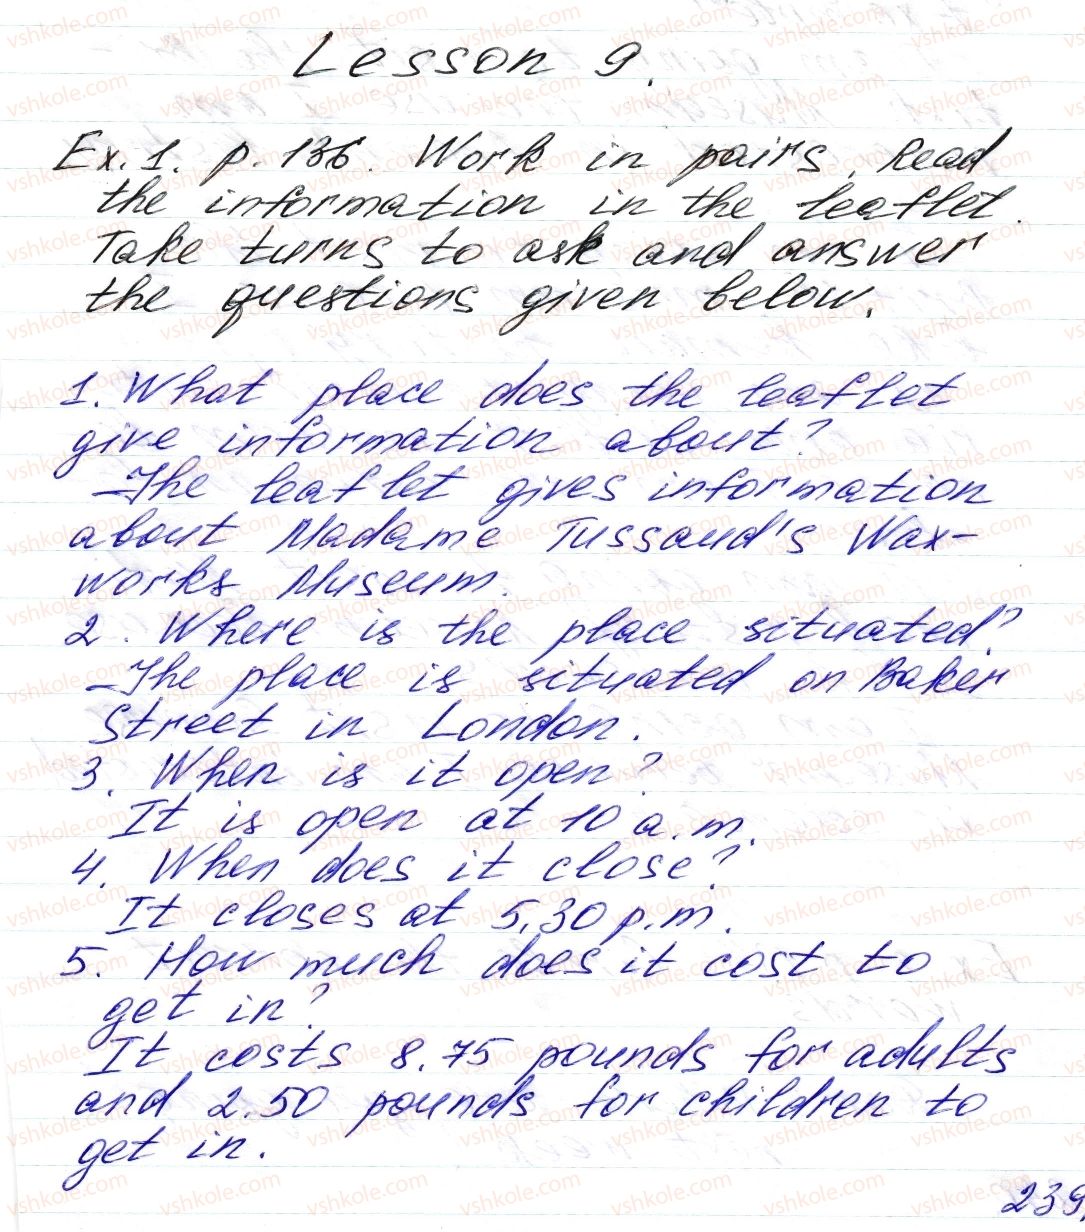 Lesson 9.
Ex. 1. p. 136. Work in pairs. Read
the information in the leaflet.
Take turns to ask and answer
the questions given below.
1. What place does the leaflet
give information about?
– The leaflet gives information
about Madame Tussaud's Wax-
works Museum.
2. Where is the place situated?
– The place is situated on Baker
Street in London.
3. When is it open?
It is open at 10 a.m.
4. When does it close?
It closes at 5,30 p.m.
5. How much does it cost to
get in?
It costs 8.75 pounds for adults
and 2.50 pounds for children to
get in.
239
vshkole.com